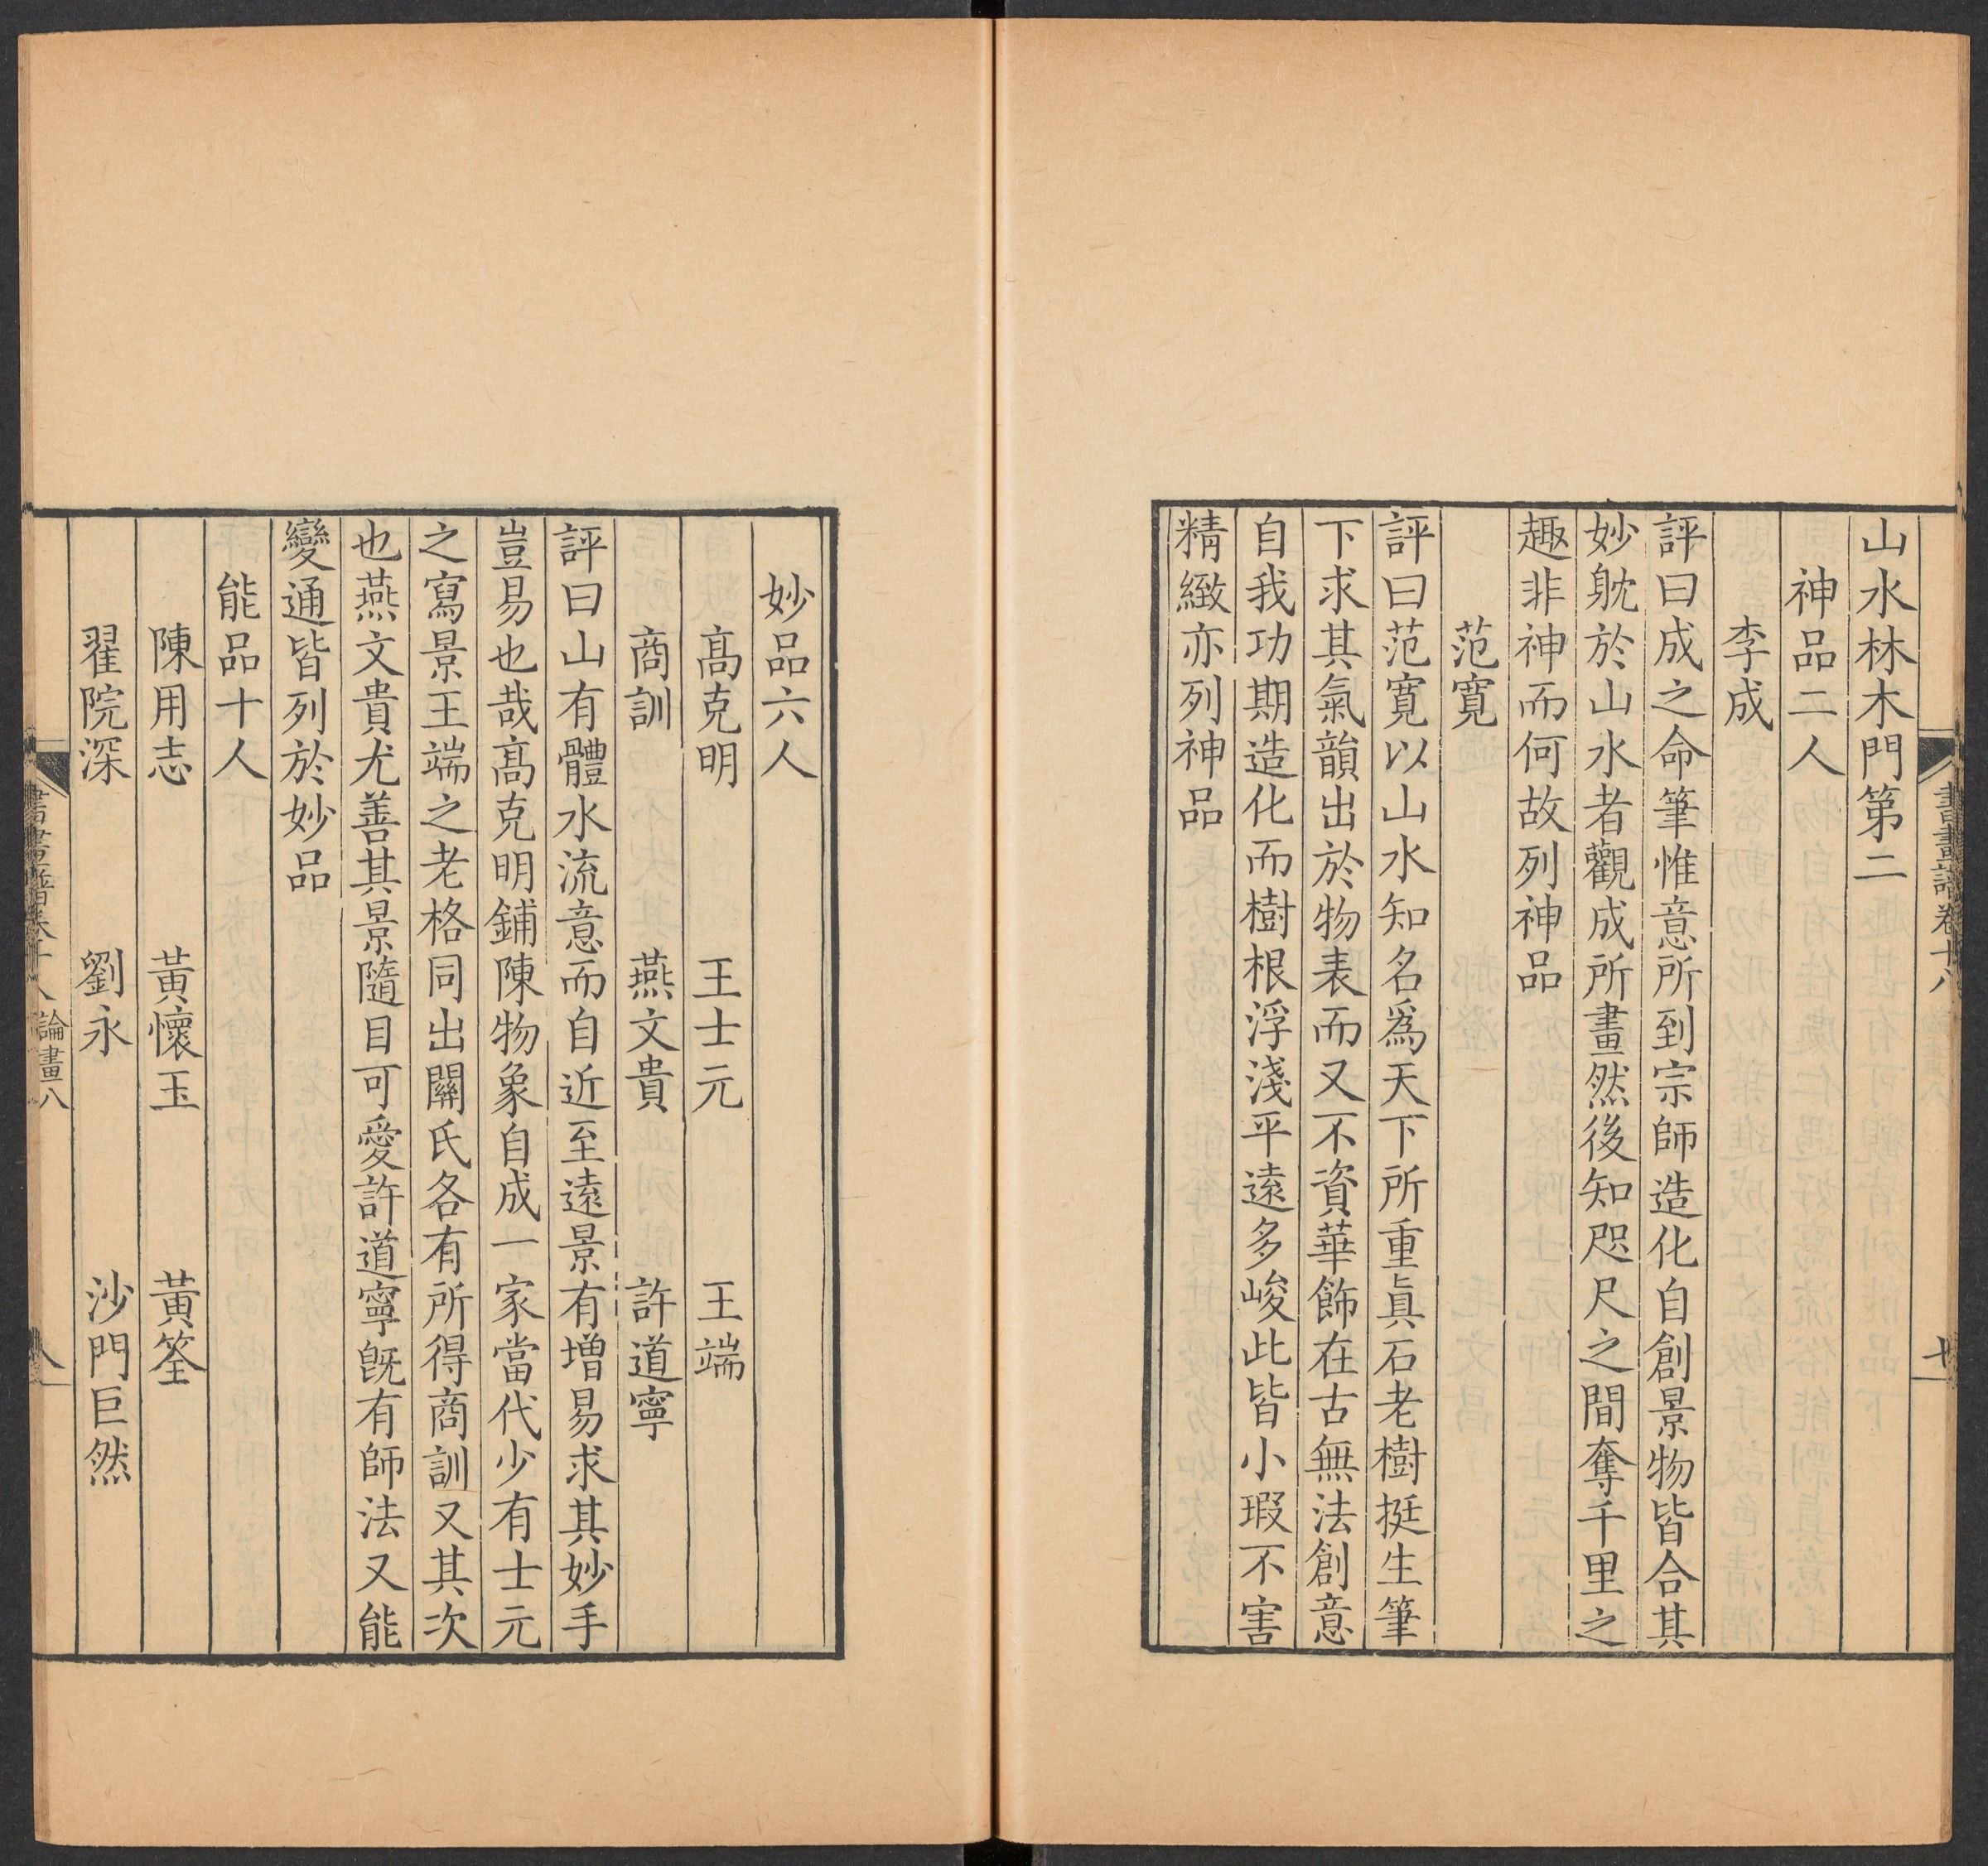 書畫譜卷十八
山水林木門第二
神品二人
李成
評曰成之命筆惟意所到宗師造化自創景物皆合其
妙躭於山水者觀成所畫然後知咫尺之間奪千里之
趣非神而何故列神品
范寬
評曰范寬以山水知名爲天下所重眞石老樹挺生筆
下求其氣韻出於物表而又不資華飾在古無法創意
自我功期造化而樹根浮淺平遠多峻此皆小瑕不害
精緻亦列神品
妙品六人
高克明 王士元 王端
商訓 燕文貴 許道寧
評曰山有體水流意而自近至遠景有增易求其妙手
豈易也哉高克明鋪陳物象自成一家當代少有士元
之寫景王端之老格同出關氏各有所得商訓又其次
也燕文貴尤善其景隨目可愛許道寧旣有師法又能
變通皆列於妙品
能品十人
陳用志 黃懷玉 黃筌
翟院深 劉永 沙門巨然
書畫譜卷十八 論畫八